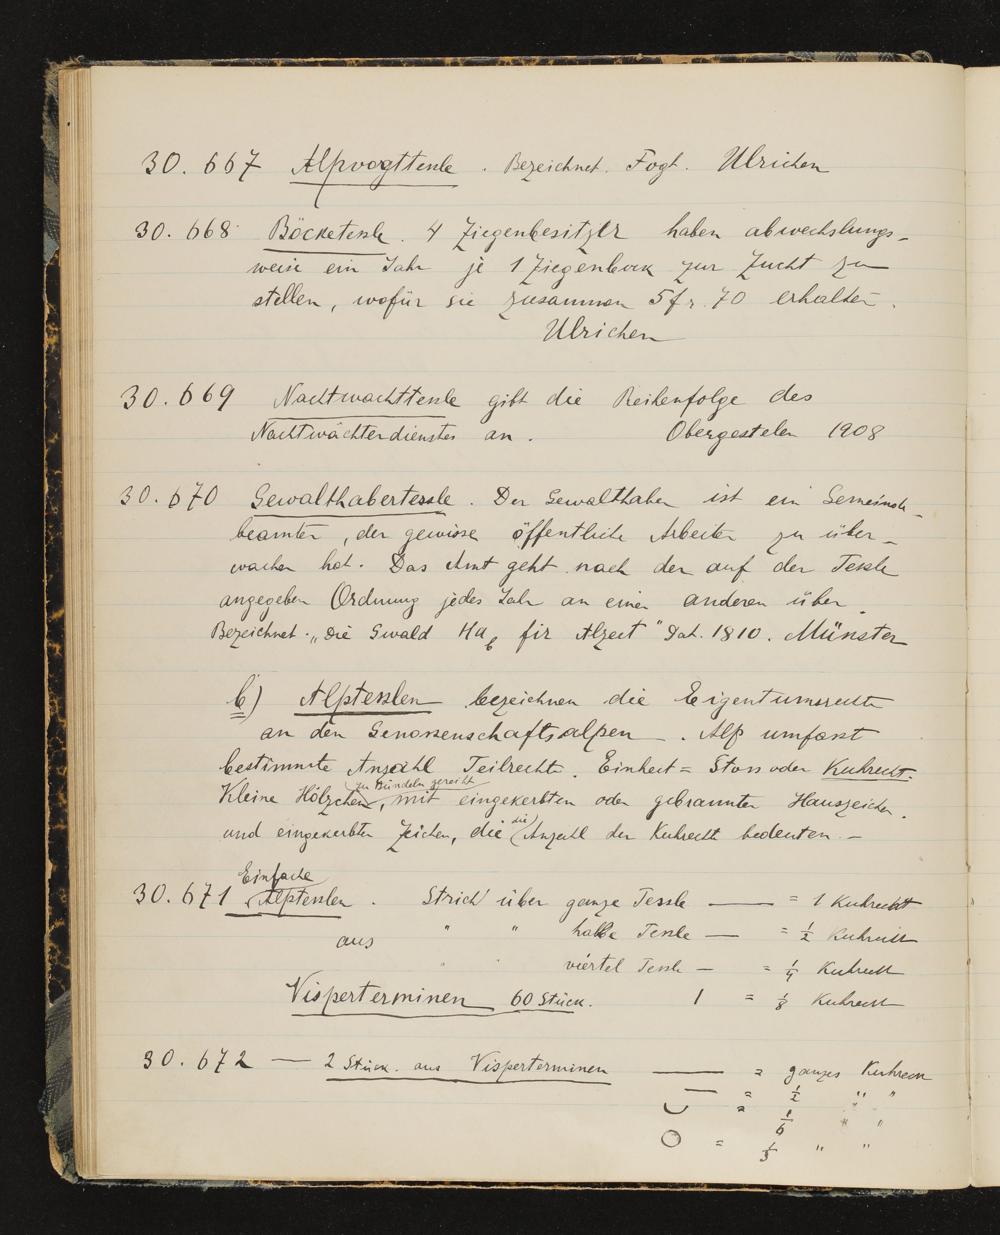 30. 667 Alpvogttessle . Bezeichnet. Fogt. Ulrichen
30. 668 Böcketessle . 4 Ziegenbesitzer haben abwechslungs-
weise ein Jahr je 1 Ziegenbock zur Zucht zu
stellen, wofür sie zusammen 5 fr. 70 erhalten.
Ulrichen
30. 669 Nachtwachttessle gibt die Reihenfolge des
Nachtwächterdienstes an . Obergestelen 1908
30. 670 Gewalthabertessle . Der Gewalthaber ist ein Gemeinde-
beamter, der gewisse öffentliche Arbeiten zu über-
wachen hat. Das Amt geht nach der auf der Tessle
angegeben Ordnung jedes Jahr an einen anderen über.
Bezeichnet. „Die Gwald Ha fir Alzeit" Dat. 1810. Münster
b) Alptesslen bezeichnen die Eigentumsrechte
an den Genossenschaftsalpen . Alp umfasst
bestimmte Anzahl Teilrechte. Einheit = Stoss oder Kuhrecht.
zu Bündeln gereiht
Kleine Hölzchen, mit eingekerbten oder gebrannten Hauszeichen
und eingekerbten Zeichen, die die Anzahl der Kuhrecht bedeuten. —
Einfache
30. 671 Alptesslen . Strich über ganze Tessle — = 1 Kuhrecht
aus " " halbe Tessle — = 1/2 Kuhrecht
" " viertel Tessle — = 1/4 Kuhrecht
Visperterminen 60 Stück. 1 = 1/8 Kuhrecht
30. 672 — 2 Stück. aus Visperterminen — = ganzes Kuhrecht
— = 1/2 " "
◡ = 1/6 " "
○ = 1/3 " "